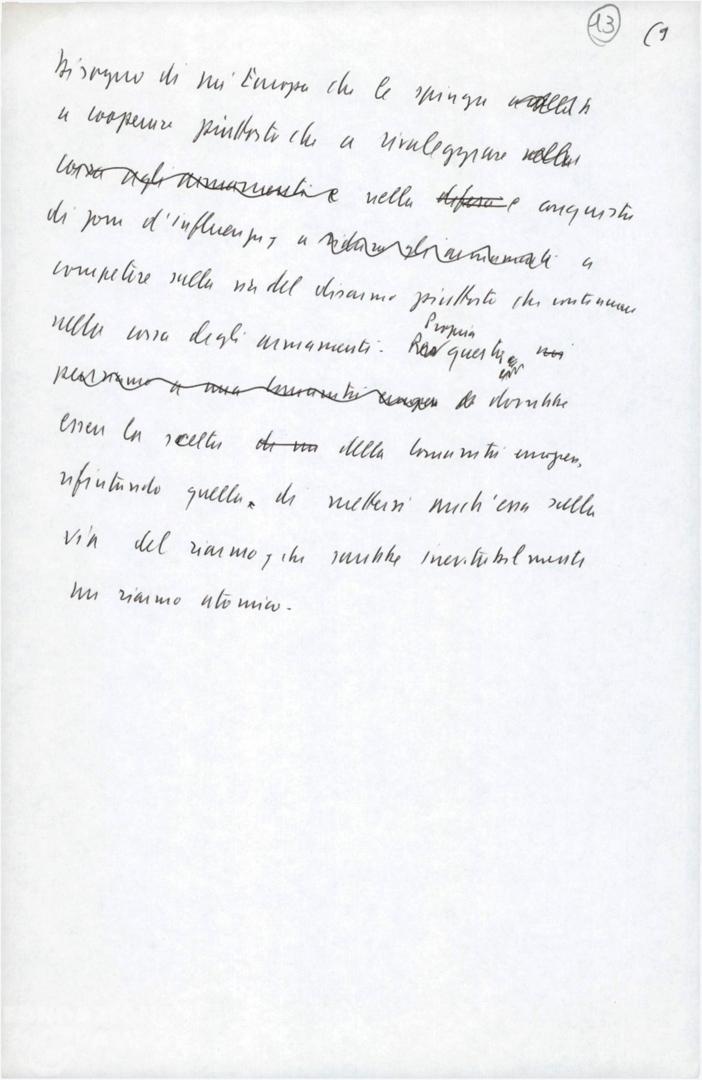 13
bisogno di un'Europa che le spinga
a cooperare piuttosto che a rivaleggiare nella
corsa agli armamenti e nella difesa e conquista
di zone d'influenza, a ridurre gli armamenti a
competere sulla via del disarmo piuttosto che continuare
nella corsa degli armamenti. Proprio questa noi
pensiamo a una comunità europea dovrebbe
essere la scelta della comunità europea,
rifiutando quella di mettersi anch'essa sulla
via del riarmo, che sarebbe inevitabilmente
un riarmo atomico.